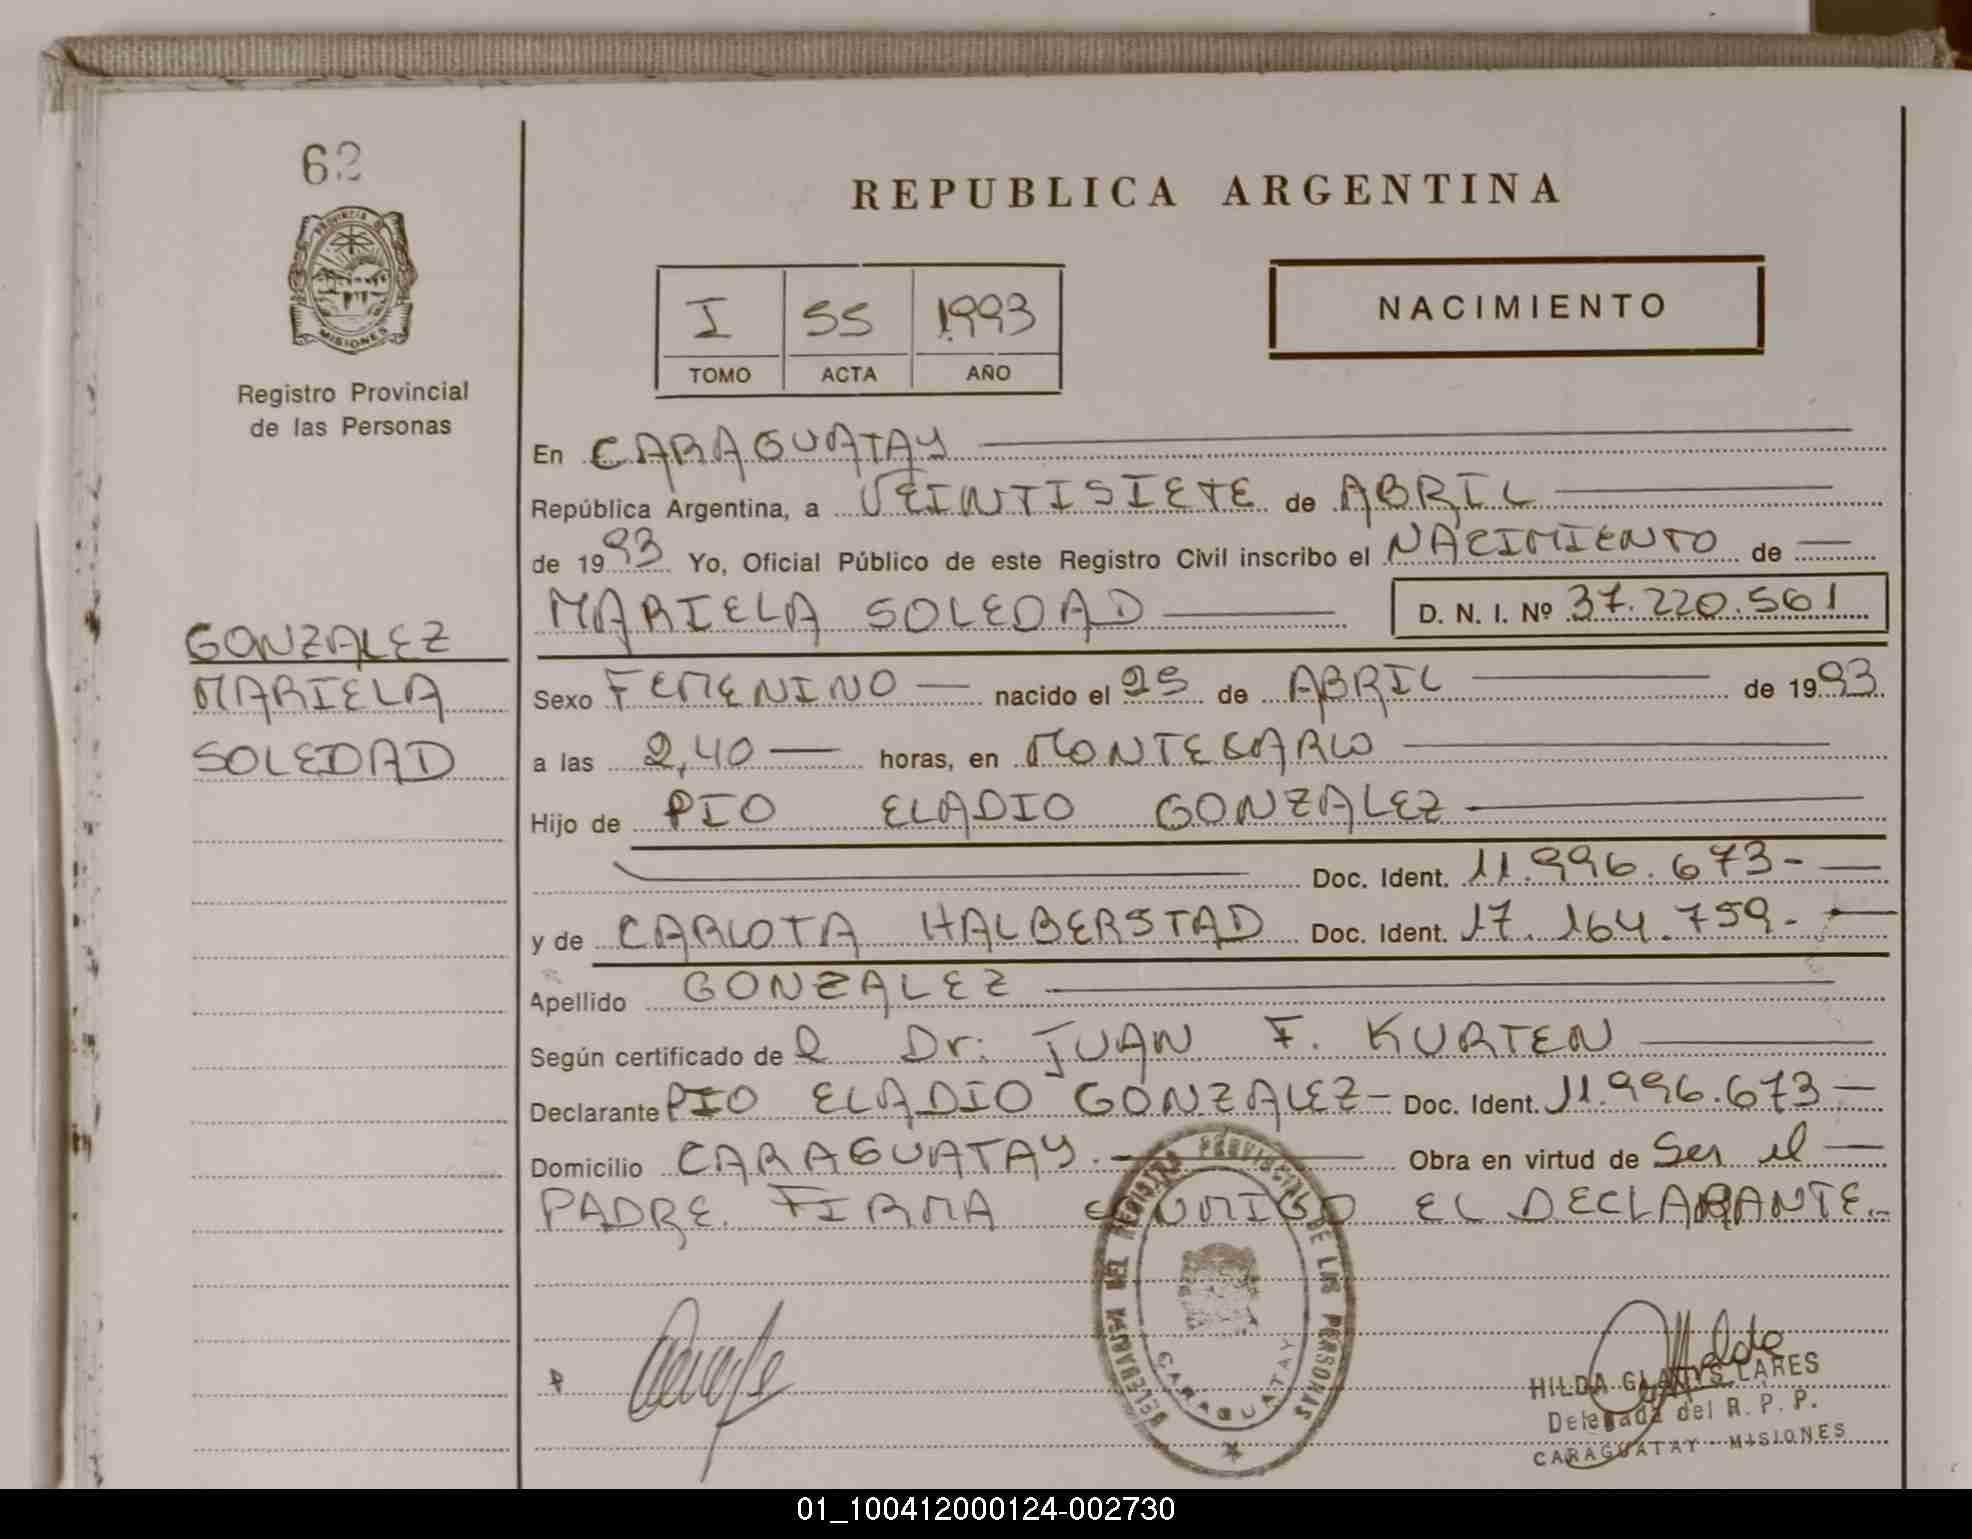 62
PROVINCIA DE
MISIONES
Registro Provincial
de las Personas
GONZALEZ
MARIELA
SOLEDAD
REPUBLICA ARGENTINA
I 55 1993
TOMO ACTA AÑO
NACIMIENTO
En CARAGUATAY
República Argentina, a VEINTISIETE de ABRIL
de 1993 Yo, Oficial Público de este Registro Civil inscribo el NACIMIENTO de
MARIELA SOLEDAD D. N. I. Nº 37.220.561
Sexo FEMENINO nacido el 25 de ABRIL de 1993
a las 2,40 horas, en MONTECARLO
Hijo de PIO ELADIO GONZALEZ
Doc. Ident. 11.996.673-
y de CARLOTA HALBERSTAD Doc. Ident. 17.164.759.-
Apellido GONZALEZ
Según certificado de l Dr. JUAN F. KURTEN
Declarante PIO ELADIO GONZALEZ- Doc. Ident. 11.996.673
Domicilio CARAGUATAY.- Obra en virtud de Ser el
PADRE. FIRMA CONMIGO EL DECLARANTE.
DELEGACION DEL REGISTRO PROVINCIAL DE LAS PERSONAS
CARAGUATAY
HILDA GLADYS LARES
Delegada del R. P. P.
CARAGUATAY - MISIONES
01_100412000124-002730